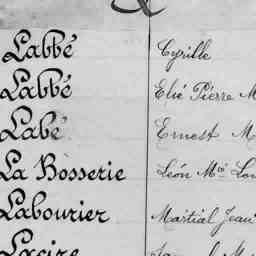 Labbé Cyrille
Labbé Elie Pierre M
Labé Ernest M
La Bosserie Léon Mce Lou
Labourier Martial Jean
Lacire